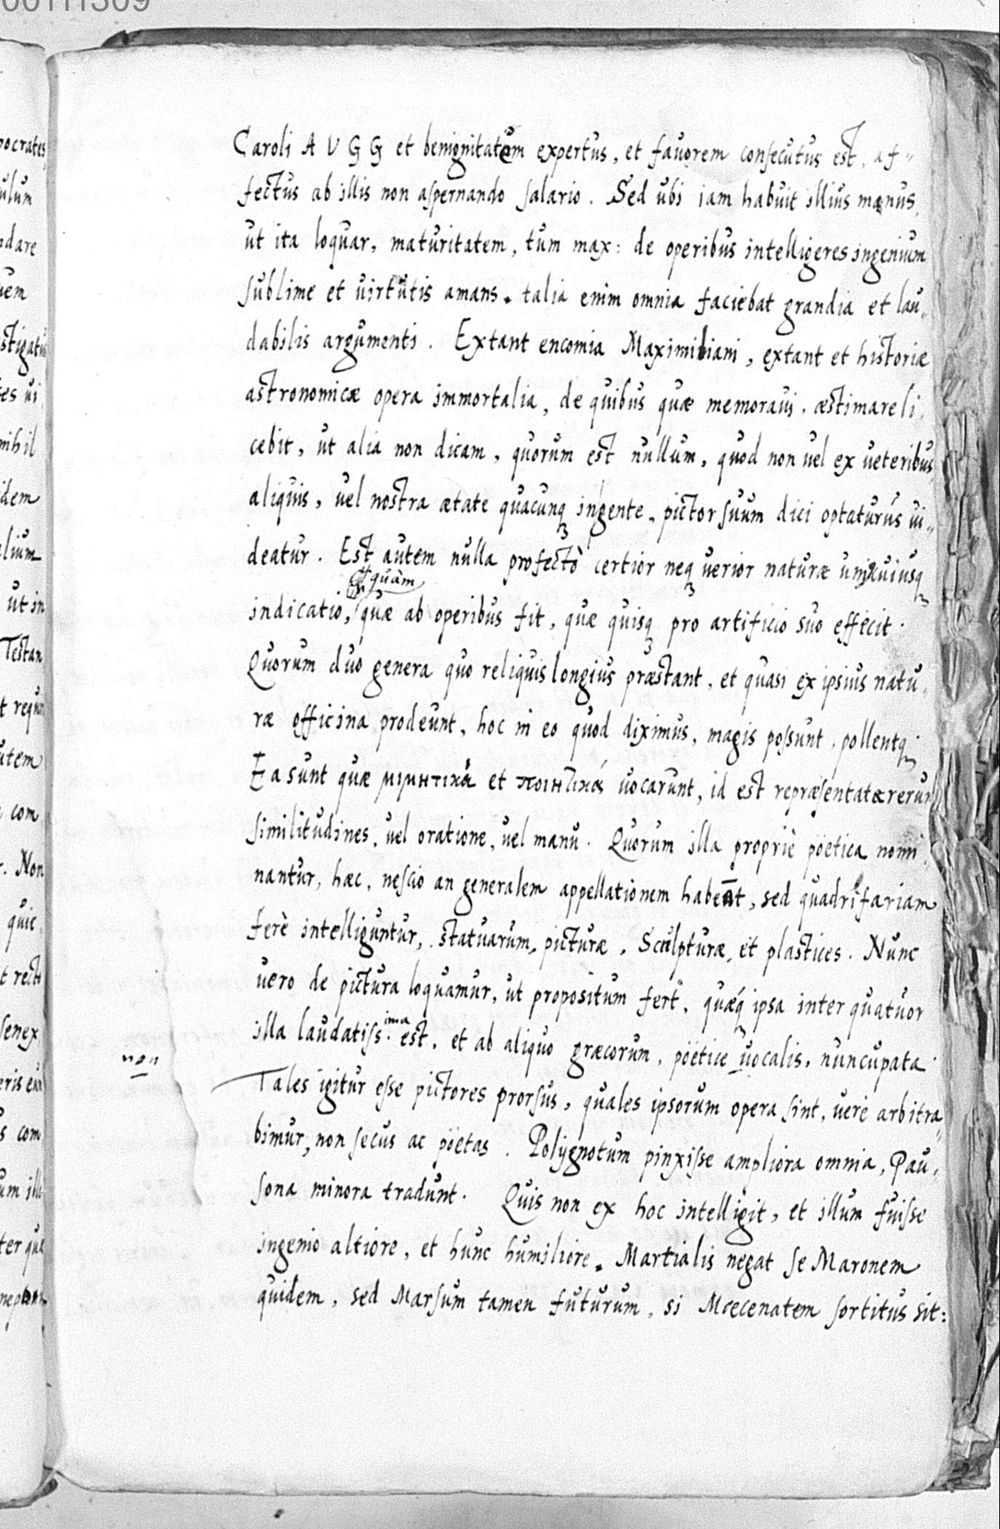 Caroli A V G G et benignitatem expertus, et fauorem consecutus est, af-
fectus ab illis non aspernando salario. Sed ubi iam habuit illius manus,
ut ita loquar, maturitatem, tum max: de operibus intelligeres ingenium
sublime et uirtutis amans. talia enim omnia faciebat grandia et lau,,
dabilis argumenti. Extant encomia Maximiliani, extant et historiæ
astronomicæ opera immortalia, de quibus quæ memoraui, æstimare li,
cebit, ut alia non dicam, quorum est nullum, quod non uel ex ueteribus
aliquis, uel nostra ætate quacunq ingente, pictor suum dici optaturus ui,,
deatur. Est autem nulla profectò certior neq uerior naturæ uniuscuiusq
quàm
indicatio, quæ ab operibus fit, quæ quisq pro artificio suo effecit.
Quorum duo genera quo reliquis longius præstant, et quasi ex ipsius natu,
ræ officina prodeunt, hoc in eo quod diximus, magis possunt, pollentq.
Ea sunt quæ μιμητικὰ et ποιητικά uocarunt, id est repræsentatæ rerum
similitudines, uel oratione, uel manu. Quorum illa propriè poëtica nomi,
nantur, hæc, nescio an generalem appellationem habeat, sed quadrifariam
ferè intelliguntur, statuarum, picturæ, Sculpturæ, et plastices. Nunc
uero de pictura loquamur, ut propositum fert, quæq ipsa inter quatuor
illa laudatiss.ima est, et ab aliquo græcorum, poëtice uocalis, nuncupata.
non
Tales igitur esse pictores prorsus, quales ipsorum opera sint, uerè arbitra,
bimur, non secus ac poëtas. Polygnotum pinxisse ampliora omnia, Pau,
sona minora tradunt. Quis non ex hoc intelligit, et illum fuisse
ingenio altiore, et hunc humiliore. Martialis negat se Maronem
quidem, sed Marsum tamen futurum, si Mœcenatem sortitus sit: